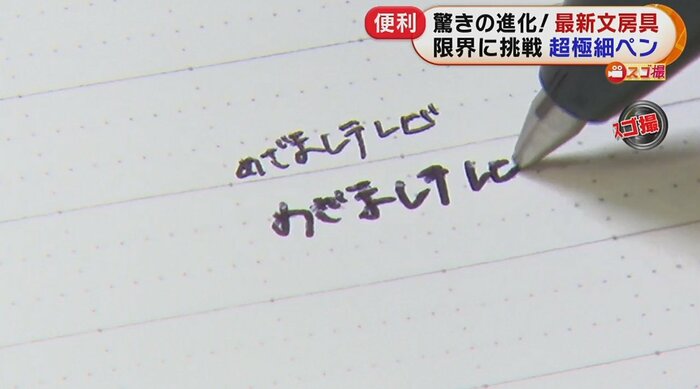 便利
驚きの進化!最新文房具
限界に挑戦 超極細ペン
スゴ撮
スゴ撮
めざましテレビ
めざましテレビ